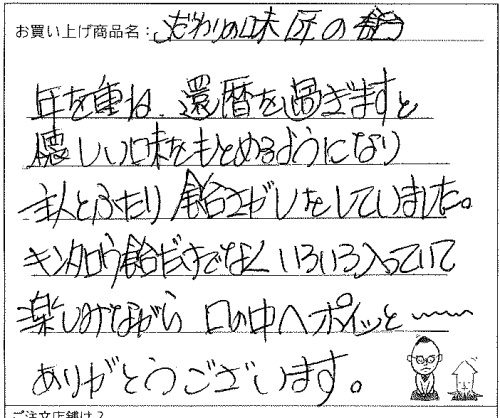 お買い上げ商品名：こだわりの味 匠の飴
年を重ね、還暦を過ぎますと
懐しい味をもとめるようになり
主人とふたり飴さがしをしていました。
キンタロウ飴だけでなくいろいろ入っていて
楽しみながら 口の中へポイッと〜〜
ありがとうございます。
ご注文店舗は？